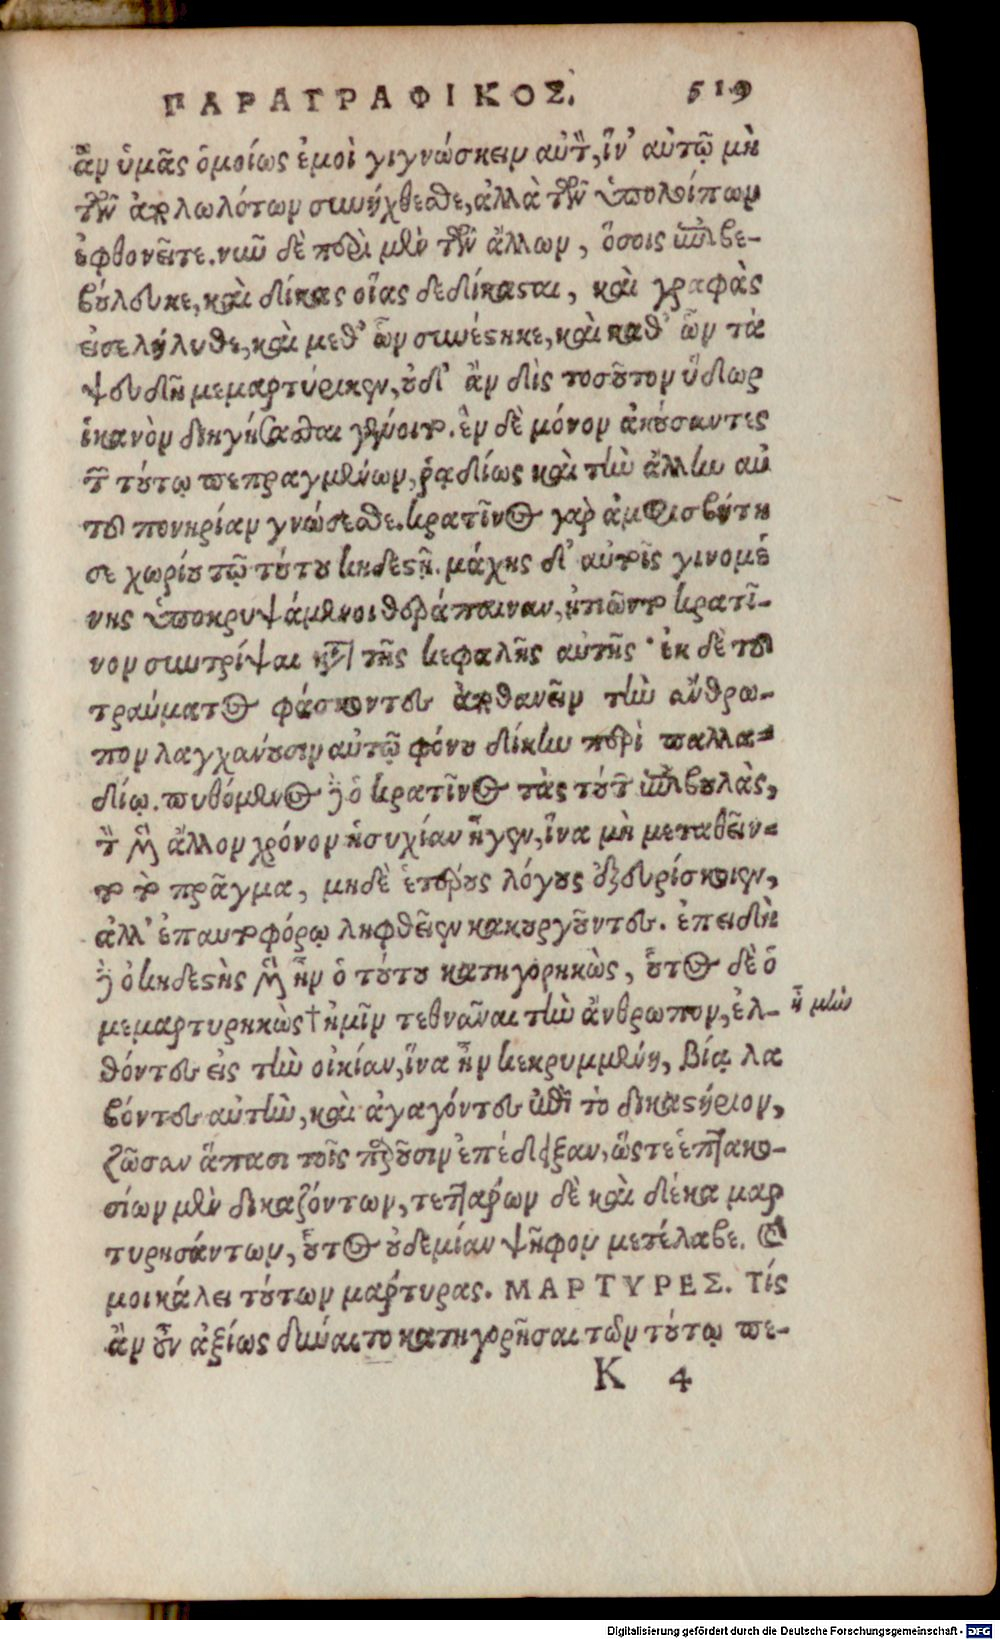 ΠΑΡΑΓΡΑΦΙΚΟΣ. 519
ἂν ὑμᾶς ὁμοίως ἐμοὶ γιγνώσκειν αὐτὸν, ἵν' αὐτῷ μὴ
τῶν ἀπολωλότων συνήχθεσθε, ἀλλὰ τῶν ὑπολοίπων
ἐφθονεῖτε. νῦν δὲ περὶ μὲν τῶν ἄλλων, ὅσοις ἐπιβε-
βούλευκε, καὶ δίκας οἵας δεδίκασται, καὶ γραφὰς
εἰσελήλυθε, καὶ μεθ' ὧν συνέστηκε, καὶ καθ' ὧν τὰ
ψευδῆ μεμαρτύρηκεν, οὐδ' ἂν δὶς τοσοῦτον ὕδωρ
ἱκανὸν διηγήσασθαι γένοιτο. ἓν δὲ μόνον ἀκούσαντες
τῶν τούτῳ πεπραγμένων, ῥᾳδίως καὶ τὴν ἄλλην αὐ
τοῦ πονηρίαν γνώσεσθε. Κρατῖνος γὰρ ἀμφισβήτη
σε χωρίου τῷ τούτου κηδεστῇ. μάχης δ' αὐτοῖς γινομέ
νης ὑποκρυψάμενοι θεράπαιναν, ᾐτιῶντο Κρατῖ-
νον συντρίψαι κατὰ τῆς κεφαλῆς αὐτῆς· ἐκ δὲ τοῦ
τραύματος φάσκοντες ἀποθανεῖν τὴν ἄνθρω-
πον λαγχάνουσιν αὐτῷ φόνου δίκην περὶ παλλα-
δίῳ. πυθόμενος δ' ὁ Κρατῖνος τὰς τούτων ἐπιβουλὰς,
τὸν μὲν ἄλλον χρόνον ἡσυχίαν ἦγεν, ἵνα μὴ μεταθεῖν-
το τὸ πρᾶγμα, μηδὲ ἑτέρους λόγους ἐξευρίσκοιεν,
ἀλλ' ἐπαυτοφόρῳ ληφθεῖεν κακουργοῦντες. ἐπειδὴ
δ' ὁ κηδεστὴς μὲν ἦν ὁ τούτου κατηγορηκὼς, οὗτος δὲ ὁ
μεμαρτυρηκὼς† ἡμῖν τεθνᾶναι τὴν ἄνθρωπον, ἐλ- ἦ μὴν
θόντες εἰς τὴν οἰκίαν, ἵνα ἦν κεκρυμμένη, βίᾳ λα
βόντες αὐτὴν, καὶ ἀγαγόντες ἐπὶ τὸ δικαστήριον,
ζῶσαν ἅπασι τοῖς παροῦσιν ἐπέδειξαν, ὥστε ἑπτακο-
σίων μὲν δικαζόντων, τεττάρων δὲ καὶ δέκα μαρ
τυρησάντων, οὗτος οὐδεμίαν ψῆφον μετέλαβε. Καί
μοι κάλει τούτων μάρτυρας. ΜΑΡΤΥΡΕΣ. Τίς
ἂν οὖν ἀξίως δύναιτο κατηγορῆσαι τῶν τούτῳ πε-
K 4
Digitalisierung gefördert durch die Deutsche Forschungsgemeinschaft - DFG